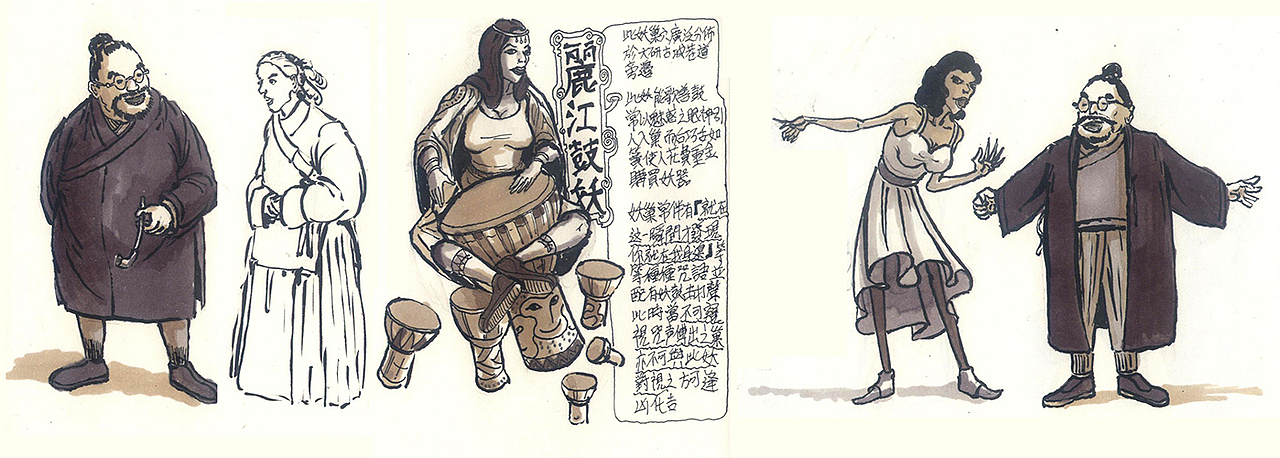 麗江鼓妖
此妖巢穴廣泛分佈
於大研古城巷道
旁邊
此妖能歌善鼓
常以魅惑之眼神引
人入巢而巧舌如
簧使人花費重金
購買妖器
妖巢常伴有『就在
这一瞬間才發現
你就在我身邊』等
等種種咒語並
配有妖鼓击打聲
此時當不可窺
視咒声傳出之巢
亦不可與此妖
對視之方可逢
凶化吉